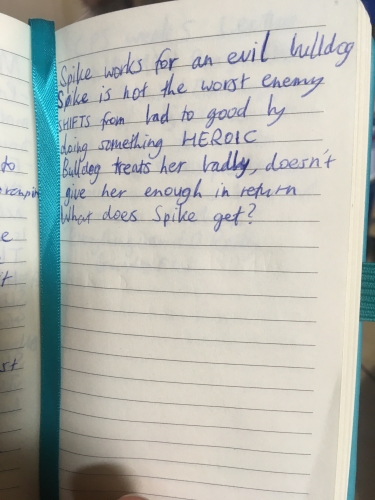 Spike works for an evil bulldog
Spike is not the worst enemy
SHIFTS from bad to good by
doing something HEROIC
Bulldog treats her badly, doesn't
give her enough in return
What does Spike get?
to
e
t